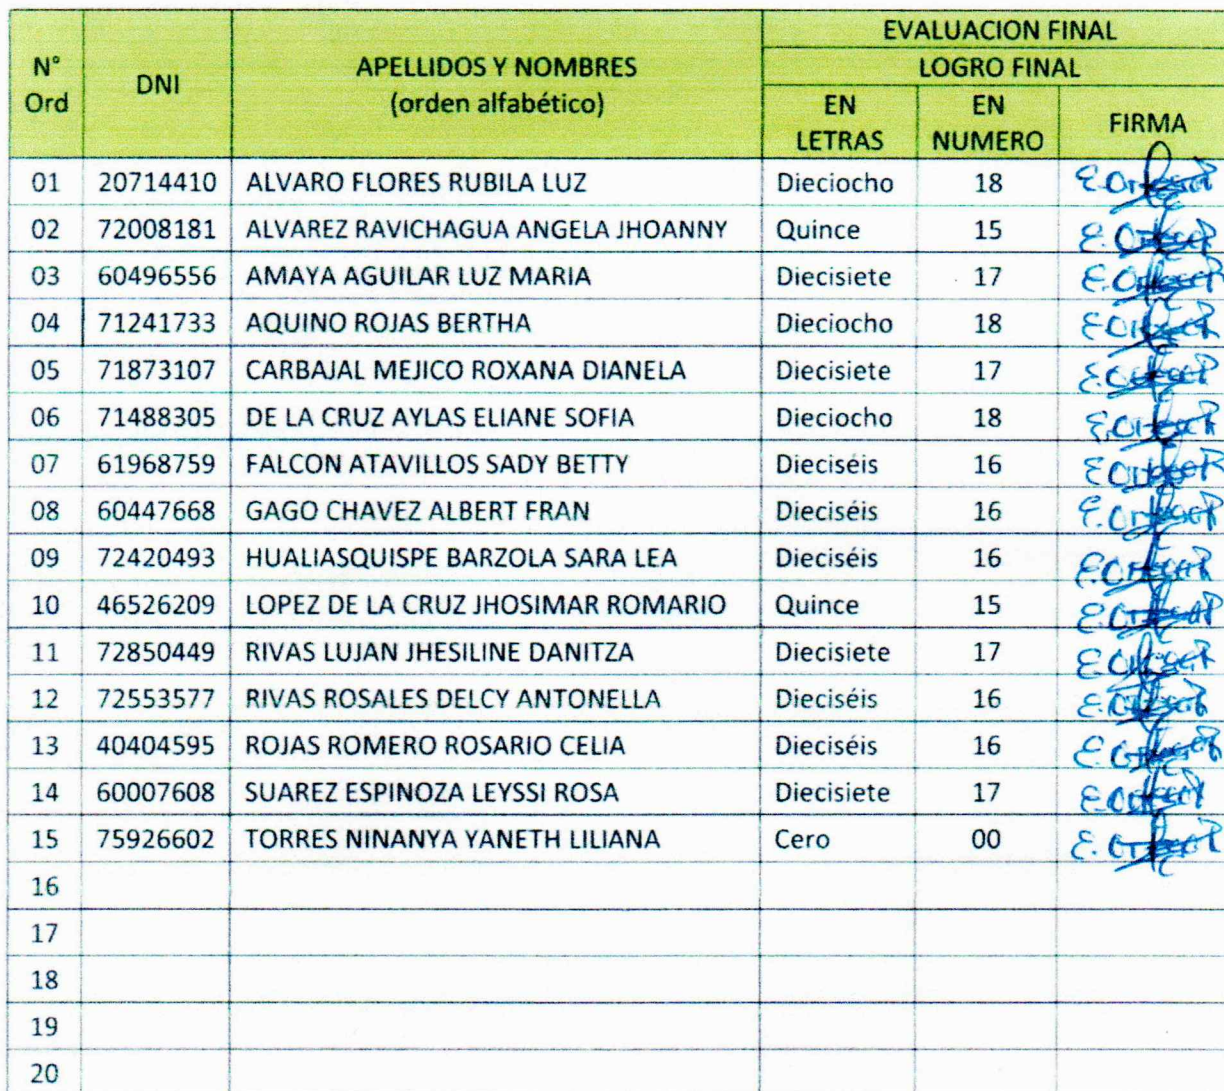 EVALUACION FINAL
LOGRO FINAL
N° Ord DNI APELLIDOS Y NOMBRES (orden alfabético) EN LETRAS EN NUMERO FIRMA
01 20714410 ALVARO FLORES RUBILA LUZ Dieciocho 18
02 72008181 ALVAREZ RAVICHAGUA ANGELA JHOANNY Quince 15
03 60496556 AMAYA AGUILAR LUZ MARIA Diecisiete 17
04 71241733 AQUINO ROJAS BERTHA Dieciocho 18
05 71873107 CARBAJAL MEJICO ROXANA DIANELA Diecisiete 17
06 71488305 DE LA CRUZ AYLAS ELIANE SOFIA Dieciocho 18
07 61968759 FALCON ATAVILLOS SADY BETTY Dieciséis 16
08 60447668 GAGO CHAVEZ ALBERT FRAN Dieciséis 16
09 72420493 HUALIASQUISPE BARZOLA SARA LEA Dieciséis 16
10 46526209 LOPEZ DE LA CRUZ JHOSIMAR ROMARIO Quince 15
11 72850449 RIVAS LUJAN JHESILINE DANITZA Diecisiete 17
12 72553577 RIVAS ROSALES DELCY ANTONELLA Dieciséis 16
13 40404595 ROJAS ROMERO ROSARIO CELIA Dieciséis 16
14 60007608 SUAREZ ESPINOZA LEYSSI ROSA Diecisiete 17
15 75926602 TORRES NINANYA YANETH LILIANA Cero 00
16
17
18
19
20